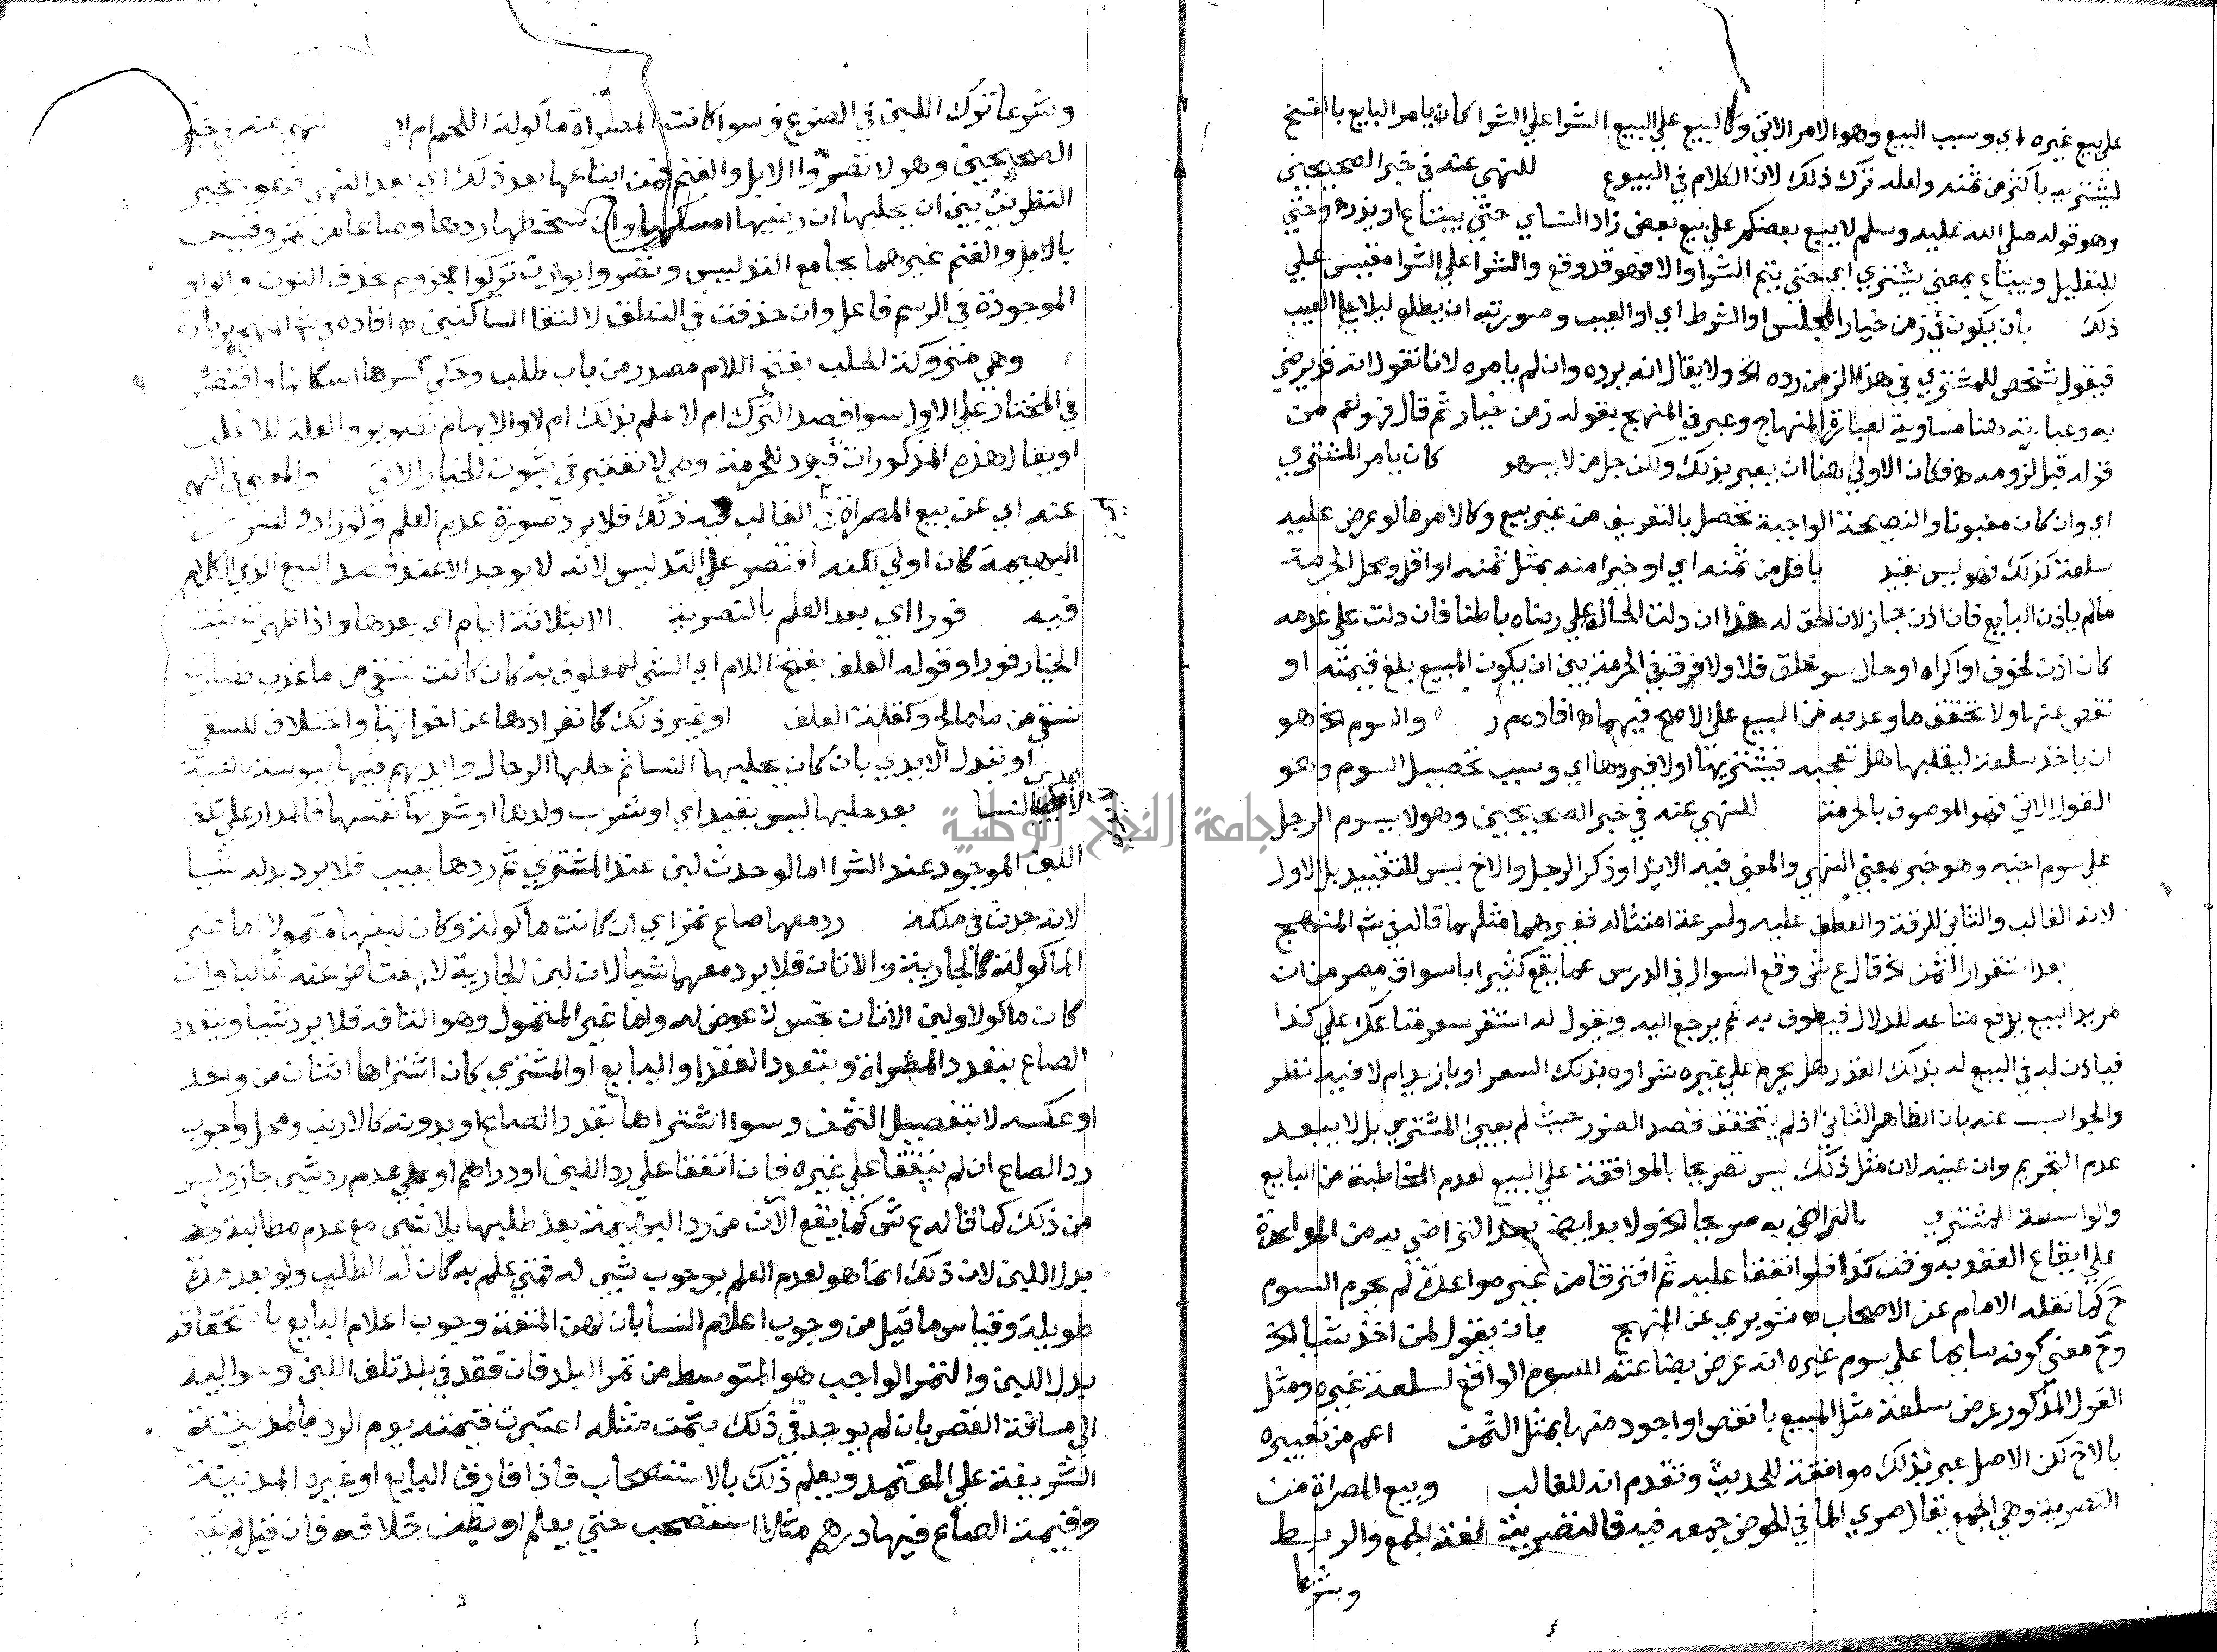 علي بيع غيره اي وسبب البيع وهو الامر الاتي وكالبيع علي البيع الشرا علي الشرا كان يامر البايع بالفسخ
ليشتريه باكثر من ثمنه ولعله ترك ذلك لان الكلام في البيوع للنهي عنه في خبر الصحيحين
وهو قوله صلي الله عليه وسلم لا يبيع بعضكم علي بيع بعض زاد النساي حتي يبتاع او يذر وحتي
للتعليل ويبتاع بمعني يشتري اي حتي يتم الشرا والا فهو قد وقع والشرا علي الشرا مقيس علي
ذلك بان يكون في زمن خيار المجلس او الشرط اي او العيب وصورته ان يطلع ليلا علي العيب
فيقول شخص للمشتري في هذا الزمن رده الخ ولا يقال انه يرده وان لم يامره لانا نقول انه قد يرضي
به وعبارته هنا مساوية لعبارة المنهاج وعبر في المنهج بقوله زمن خيار ثم قال فهو اعم من
قوله قبل لزومه ط فكان الاولي هنا ان يعبر بذلك ولكن جل من لا يسهو كان يامر المشتري
اي وان كان مغبونا والنصيحة الواجبة تحصل بالتعريف من غير بيع وكالامر ما لو عرض عليه
سلعة كذلك فهو ليس بقيد باقل من ثمنه اي او خيرا منه بمثل ثمنه او اقل ومحل الحرمة
ما لم ياذن البايع فان اذن جاز لان الحق له هذا ان دلت الحال علي رضاه باطنا فان دلت علي عدمه
كان اذن لخوف او اكراه او حال سو خلق فلا ولا فرق في الحرمة بين ان يكون المبيع بلغ قيمته او
نقص عنها ولا تحقق ما وعد به من المبيع علي الاصح فيهما ط افاده م ر والسوم الخ هو
ان ياخذ سلعة ليقلبها هل تعجبه فيشتريها اولا فيردها اي وسبب تحصيل السوم وهو
القول الاتي فهو الموصوف بالحرمة للنهي عنه في خبر الصحيحين وهو لا يسوم الرجل
علي سوم اخيه وهو خبر بمعني النهي والمعني فيه الايذا وذكر الرجل والاخ ليس للتقييد بل الاول
لانه الغالب والثاني للرقة والعطف عليه ولسرعة امتثاله فغيرهما مثلهما قاله في ش المنهج
بعد استقرار الثمن الخ قال ع ش وقع السوال في الدرس عما يقع كثيرا باسواق مصر من ان
مريد البيع يدفع متاعه للدلال فيطوف به ثم يرجع اليه ويقول له استقر سعر متاعك علي كذا
فياذن له في البيع له بذلك القدر هل يحرم علي غيره شراوه بذلك السعر او بازيد ام لا فيه نظر
والجواب عنه بان الظاهر الثاني اذ لم يتحقق قصد الضرر حيث لم يعين المشتري بل لا يبعد
عدم التحريم وان عينه لان مثل ذلك ليس تصريحا بالموافقة علي البيع لعدم المخاطبة من البايع
والواسطة للمشتري بالتراضي به صريحا الخ ولا بد ايضا بعد التراضي به من المواعدة
علي ايقاع العقد به وقت كذا فلو اتفقا عليه ثم افترقا من غير مواعدة لم يحرم السوم
ح كما نقله الامام عن الاصحاب ط شوبري عن المنهج بان يقول لمن اخذ شيا الخ
وح معني كونه سايما علي سوم غيره انه عرض بضاعته للسوم الواقع لسلعة غيره ومثل
القول المذكور عرض سلعة مثل المبيع بانقص او اجود منها بمثل الثمن اعم من تعبيره
بالاخ لكن الاصل عبر بذلك موافقة للحديث وتقدم انه للغالب وبيع المصراة من
التصرية وهي الجمع يقال صري الما في الحوض جمعه فيه فالتصرية لغة الجمع والربط
وشرعا
وشرعا ترك اللبن في الضرع وسوا كانت المصراة ماكولة اللحم ام لا للنهي عنه في خبر
الصحيحين وهو لا تصروا الابل والغنم فمن ابتاعها بعد ذلك اي بعد النهي فهو بخير
النظرين بين ان يحلبها ان رضيها امسكها وان سخطها ردها وصاعا من تمر وقيس
بالابل والغنم غيرهما بجامع التدليس وتصروا بوزن تزكوا مجزوم بحذف النون والواو
الموجودة في الرسم فاعل وان حذفت في النطق لالتقا الساكنين ط افاده في ش المنهج بزيادة
وهي متروكة الحلب بفتح اللام مصدر من باب طلب وحكي كسرها اسكانها واقتصر
في المختار علي الاول سوا قصد الترك ام لا علم بذلك ام لا والايهام تصوير والعلة للاغلب
او يقال هذه المذكورات قيود للحرمة وهي لا تعتبر في ثبوت الخيار الاتي والمعني في النهي
عنه اي عن بيع المصراة الغالب فيه ذلك فلا يرد صورة عدم العلم ولو زاد ولضرر
البهيمة كان اولي لكنه اقتصر علي التدليس لانه لا يوجد الا عند قصد البيع الذي الكلام
فيه فورا اي بعد العلم بالتصرية الا بثلاثة ايام اي بعدها واذا ظهرت ثبت
الخيار فورا وقوله العلف بفتح اللام اي الشي المعلوف به كان كانت تسقي من ما عذب فصارت
تسقي من ما مالح وكقلة العلف او غير ذلك كانفرادها عن اخواتها واختلاف للسقي
او تبدل الايدي بان كان يحلبها النسا ثم حلبها الرجال وايديهم فيها يبوسة بالنسبة
لايدي النسا بعد حلبها ليس بقيد اي او شرب ولدها او شربها نفسها فالمدار علي تلف
اللبن الموجود عند الشرا اما لو حدث لبن عند المشتري ثم ردها بعيب فلا يرد بدله شيا
لانه حدث في ملكه رد معها صاع تمر اي ان كانت ماكولة وكان لبنها متمولا اما غير
الماكولة كالجارية والاتان فلا يرد معهما شيا لان لبن الجارية لا يعتاض عنه غالبا وان
كان ماكولا ولبن الاتان نجس لا عوض له واما غير المتمول وهو التافه فلا يرد شيا ويتعدد
الصاع بتعدد المصراة وبتعدد العقد او البايع او المشتري كان اشتراها اثنان من واحد
او عكسه لا بتفصيل الثمن وسوا اشتراها بقدر الصاع او بدونه كالارنب ومحل وجوب
رد الصاع ان لم يتفقا علي غيره فان اتفقا علي رد اللبن او دراهم او علي عدم رد شي جاز وليس
من ذلك كما قاله ع ش كما يقع الآن من رد البهيمة بعد طلبها بلا شي مع عدم مطالبة
بدل اللبن لان ذلك انما هو لعدم العلم بوجوب شي له فمتي علم به كان له الطلب ولو بعد مدة
طويلة وقياس ما قيل من وجوب اعلام النسا بان لهن المتعة وجوب اعلام البايع باستحقاقه
بدل اللبن والتمر الواجب هو المتوسط من تمر البلد فان فقد في بلد تلف اللبن وحواليه
الي مسافة القصر بان لم يوجد في ذلك بثمن مثله اعتبرت قيمته يوم الرد بالمدينة
الشريفة علي المعتمد ويعلم ذلك بالاستصحاب فاذا فارق البايع او غيره المدينة
وقيمة الصاع فيها درهم مثلا استصحب حتي يعلم او يظن خلافه فان قيل لم
جامعة النجاح الوطنية